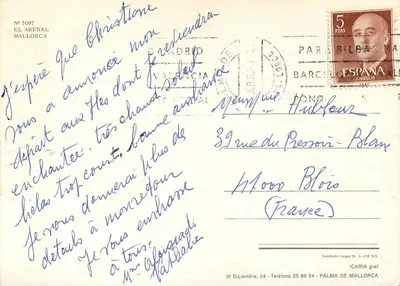 Nº 5097
EL ARENAL
MALLORCA
J'espère que Christiane
vous a annoncé mon
départ aux Iles dont je reviendrai
enchantée, très chaud soleil
hélas trop court, bonne ambiance
Je vous donnerai plus de
détails à mon retour
Je vous embrasse
à tous.
Nathalie
5
PTAS
ESPAÑA
CORREOS
MADRID
VALENCIA
PAR BILBAO
BARCEL
39 rue du Pressoir-Blanc
41000 Blois
(France)
Depósito Legal B.
ICARIA graf
31 Diciembre, 24 - Teléfono 25 69 64 - PALMA DE MALLORCA